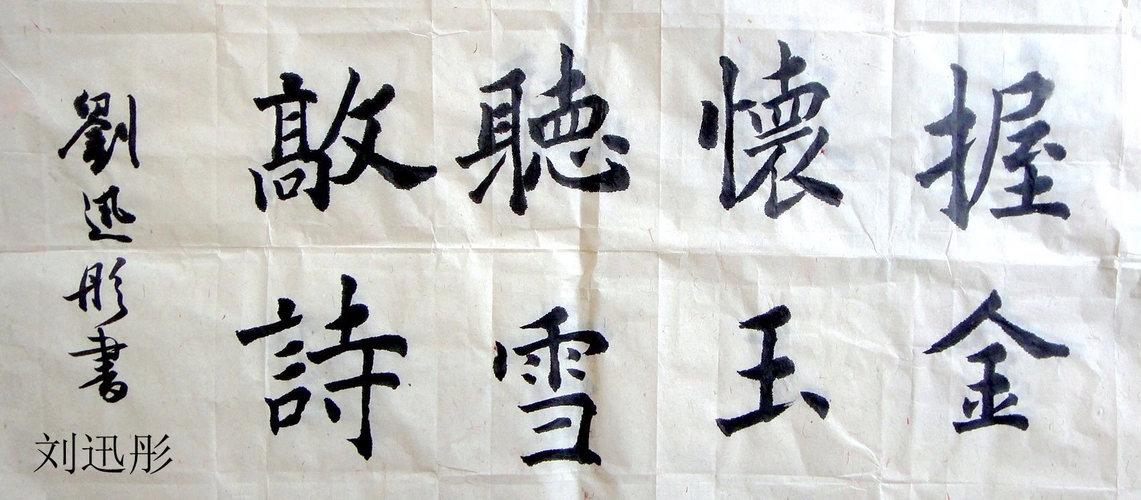 握金
懷玉
聽雪
敲詩
劉迅彤書
刘迅彤